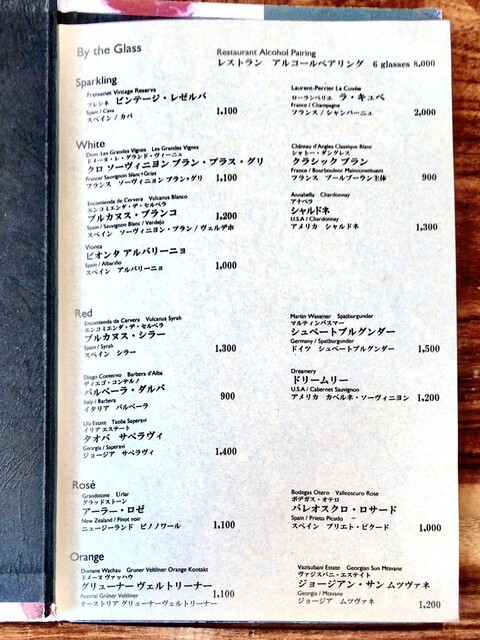 By the Glass
Restaurant Alcohol Pairing
レストラン アルコールペアリング 6 glasses 8,000
Sparkling
Freixenet Vintage Reserva
フレシネ ビンテージ・レゼルバ
Spain / Cava
スペイン / カバ 1,100
Laurent-Perrier La Cuvée
ローランペリエ ラ・キュベ
France / Champagne
フランス / シャンパーニュ 2,000
White
Dom. Les Grandes Vignes Les Grandes Vignes
ドメーヌ・レ・グランド・ヴィーニュ
クロ ソーヴィニヨン ブラン・プラス・グリ
France/ Sauvignon blanc+Gries
フランス ソーヴィニヨン ブラン+グリ 1,100
Château d'Angles Classique Blanc
シャトー・ダングレス
クラシック ブラン
France / Bourbouleue Mainconstituent
フランス ブールブーラン主体 900
Encomienda de Cervera Vulcanus Blanco
エンコミエンダ・デ・セルベラ
ブルカヌス・ブランコ
Spain / Sauvignon Blanc / Verdejo
スペイン ソーヴィニヨン・ブラン / ヴェルデホ 1,200
Annabella Chardonnay
アナベラ
シャルドネ
U.S.A / Chardonnay
アメリカ シャルドネ 1,300
Vionta
ビオンタ アルバリーニョ
Spain / Albariño
スペイン アルバリーニョ 1,000
Red
Encomienda de Cervera Vulcanus Syrah
エンコミエンダ・デ・セルベラ
ブルカヌス・シラー
Spain / Syrah
スペイン シラー 1,300
Martin Wassmer Spatburgunder
マルティンバスマー
シュペートブルグンダー
Germany / Spatburgunder
ドイツ シュペートブルグンダー 1,500
Diego Conterno Barbera d'Alba
ディエゴ・コンテルノ
バルベーラ・ダルバ
Italy / Barbera
イタリア バルベーラ 900
Dreamery
ドリームリー
U.S.A / Cabernet Sauvignon
アメリカ カベルネ・ソーヴィニヨン 1,200
Lila Estate Taoba Saperavi
イリア エステート
タオバ サペラヴィ
Georgia / Saperavi
ジョージア サペラヴィ 1,400
Rosé
Grandstone Urlar
グラッドストーン
アーラー・ロゼ
New Zealand / Pinot noir
ニュージーランド ピノノワール 1,100
Bodegas Otero Valleoscuro Rose
ボデガス・オテロ
バレオスクロ・ロサード
Spain / Prieto Picudo
スペイン プリエト・ピクード 1,000
Orange
Domane Wachau Gruner Veltliner Orange Kontakt
ドメーヌ ヴァッハウ
グリューナー ヴェルトリーナー
Austria/ Grüner Veltliner
オーストリア グリューナーヴェルトリーナー 1,100
Vazisubani Estate Georgian Sun Mtsvane
ヴァジスバニ・エステイト
ジョージアン・サン ムツヴァネ
Georgia / Mtsvane
ジョージア ムツヴァネ 1,200